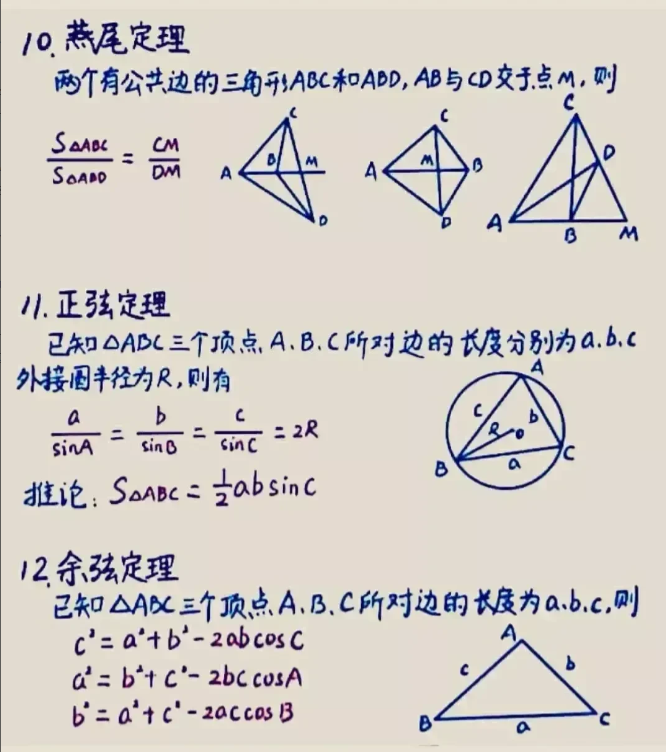 10. 燕尾定理
两个有公共边的三角形ABC和ABD, AB与CD交于点M, 则
S△ABC/S△ABD = CM/DM
C
A B M
D
C
A M B
D
C
D
A B M
11. 正弦定理
已知△ABC三个顶点A.B.C所对边的长度分别为a.b.c
外接圆半径为R, 则有
a/sinA = b/sinB = c/sinC = 2R
推论: S△ABC = 1/2 ab sinC
A
c b
R o
B a C
12. 余弦定理
已知△ABC三个顶点A.B.C所对边的长度为a.b.c, 则
c² = a² + b² - 2abcosC
a² = b² + c² - 2bccosA
b² = a² + c² - 2accosB
A
c b
B a C